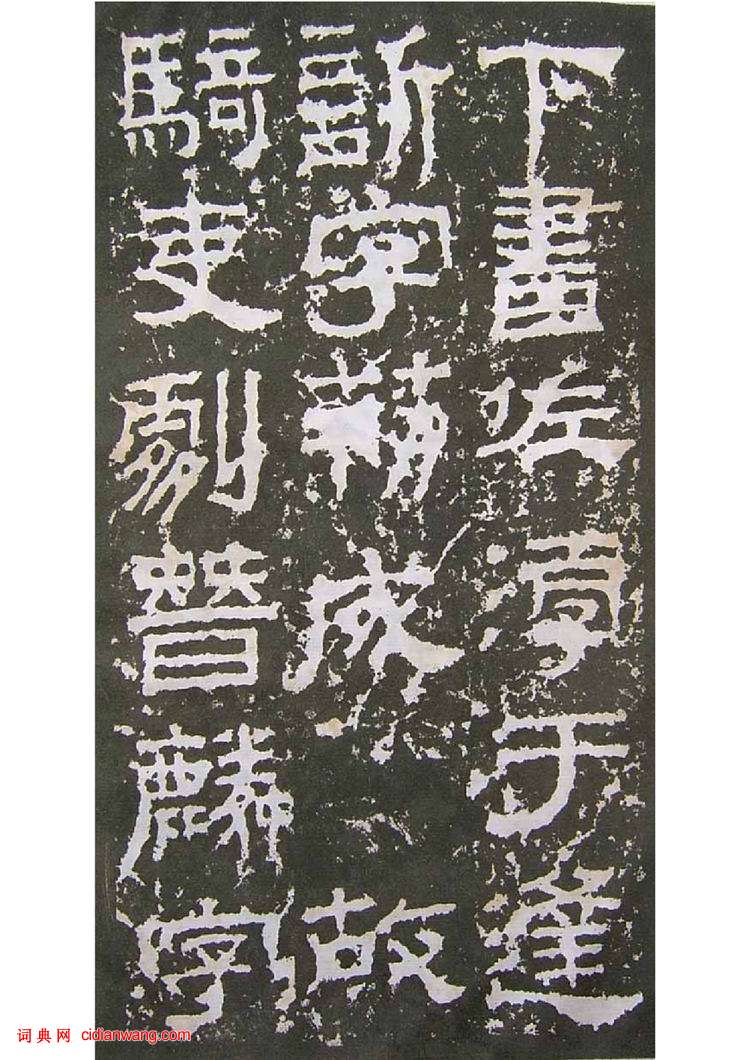 下書佐淳于逢
訢字成故
騎吏劇晉麟字
词典网 cidianwang.com